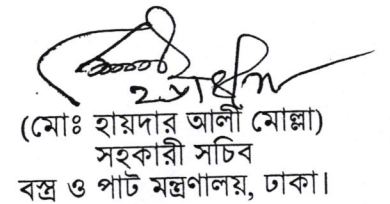 (মোঃ হায়দার আলী মোল্লা)
সহকারী সচিব
বস্ত্র ও পাট মন্ত্রণালয়, ঢাকা।